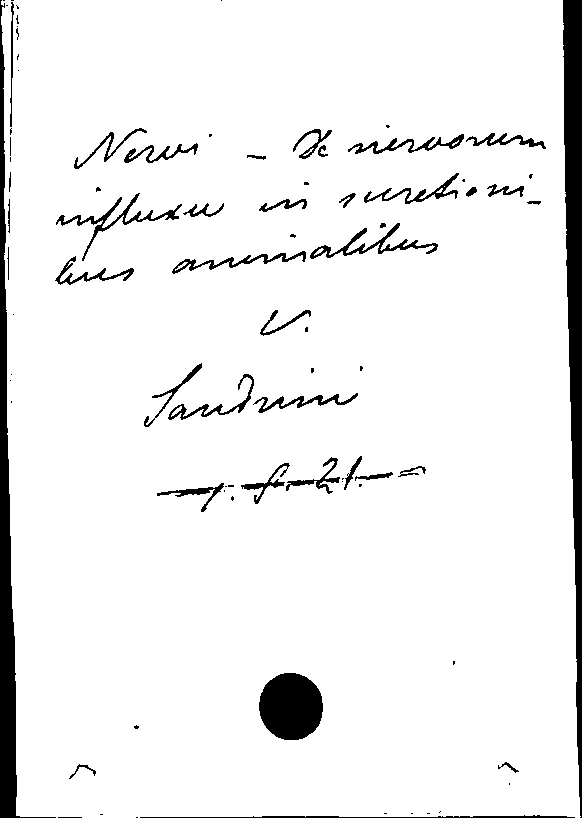 Nervi - De nervorum
influxu in secretioni-
bus animalibus
V.
Sandrini